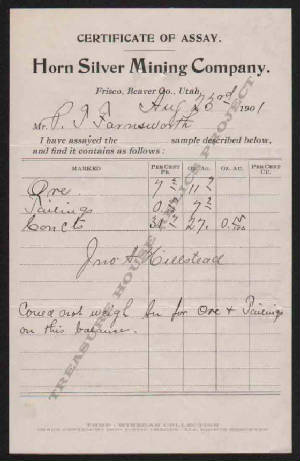 CERTIFICATE OF ASSAY.
Horn Silver Mining Company.
Frisco, Beaver Co., Utah, Aug 23rd 1901
Mr. P. T. Farnsworth
I have assayed the sample described below,
and find it contains as follows:
MARKED PER CENT PB. OZ. AG. OZ. AU. PER CENT CU.
Ore 7 11
Tailings 7
Concts 27
Jno S. Hillstead
Could not weigh Au for Ore & Tailings
on this balance.
TREASURE HOUSE RELICS PROJECT
COLLECTION